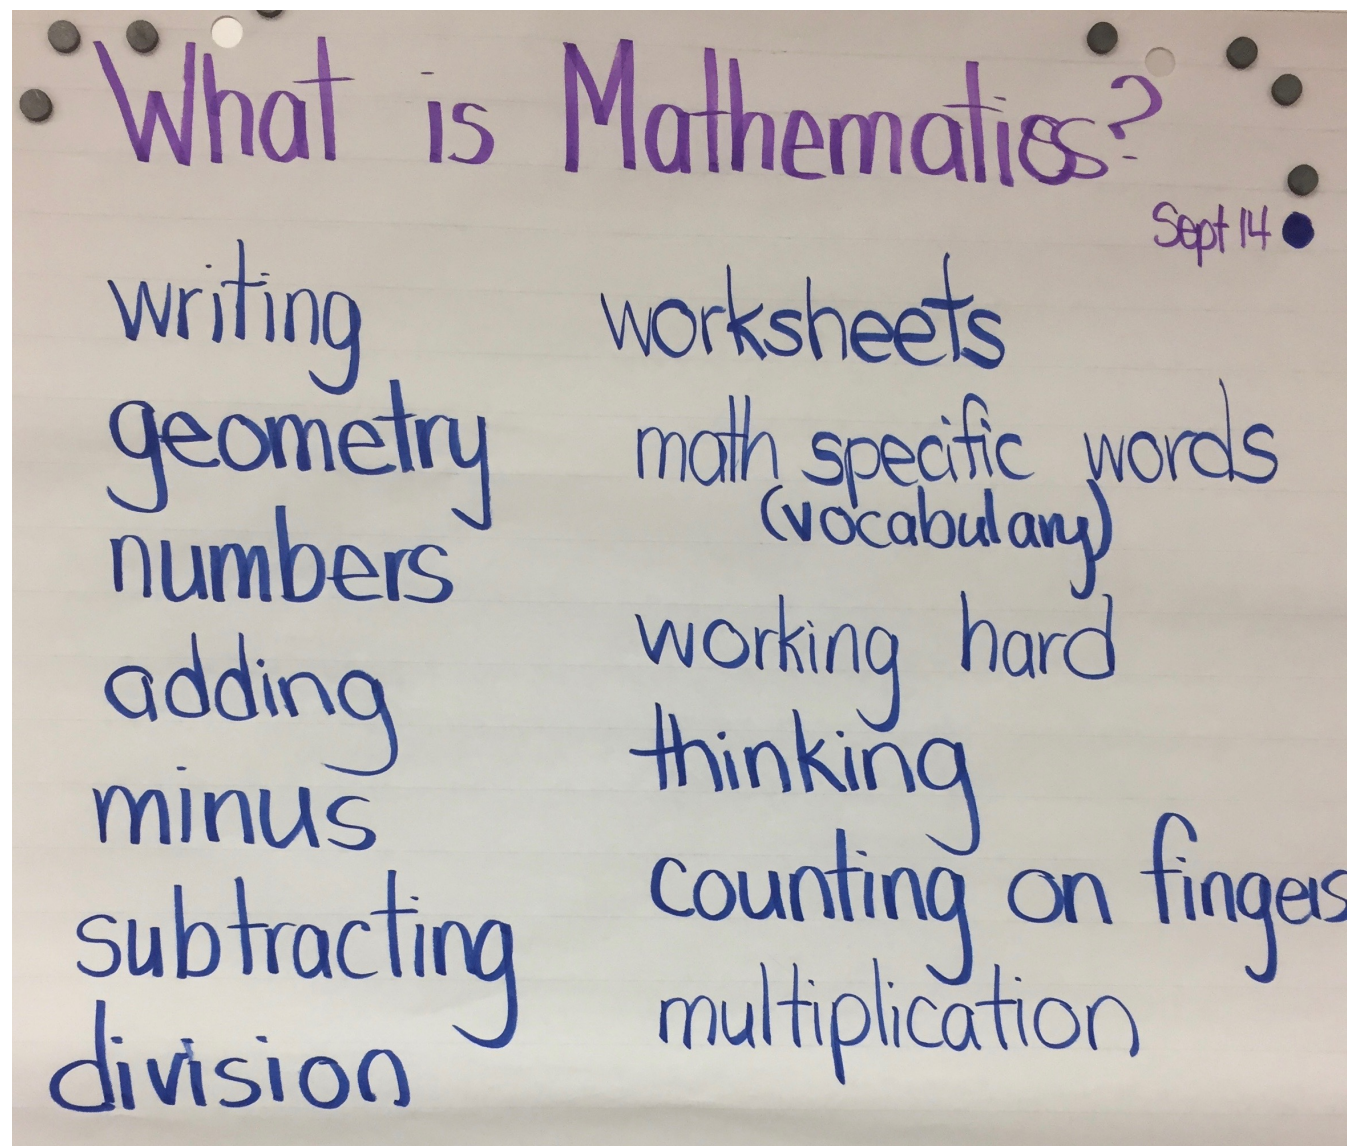 What is Mathematics?
Sept 14
writing
geometry
numbers
adding
minus
subtracting
division
worksheets
math specific words
(vocabulary)
working hard
thinking
counting on fingers
multiplication